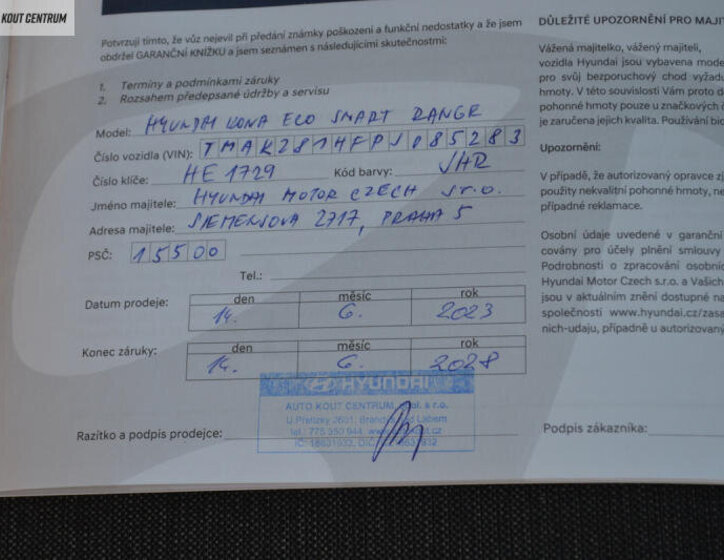 KOUT CENTRUM
Potvrzuji tímto, že vůz nejevil při předání známky poškození a funkční nedostatky a že jsem
obdržel GARANČNÍ KNÍŽKU a jsem seznámen s následujícími skutečnostmi:
1. Termíny a podmínkami záruky
2. Rozsahem předepsané údržby a servisu
Model: HYUNDAI KONA ECO SMART RANGE
Číslo vozidla (VIN): TMAK281HFPJ085283
Číslo klíče: HE 1729 Kód barvy:
Jméno majitele: HYUNDAI MOTOR CZECH s.r.o.
Adresa majitele: SIEMENSOVA 2717, PRAHA 5
PSČ: 15500
Tel.:
Datum prodeje: den měsíc rok
14. 6. 2023
Konec záruky: den měsíc rok
14. 6. 2028
HYUNDAI
AUTO KOUT CENTRUM, s.r.o.
Razítko a podpis prodejce:
DŮLEŽITÉ UPOZORNĚNÍ PRO MAJI
Vážená majitelko, vážený majiteli,
vozidla Hyundai jsou vybavena mode
pro svůj bezporuchový chod vyžadu
hmoty. V této souvislosti Vám proto d
pohonné hmoty pouze u značkových
je zaručena jejich kvalita. Používání bio
Upozornění:
V případě, že autorizovaný opravce zj
použity nekvalitní pohonné hmoty, ne
případné reklamace.
Osobní údaje uvedené v garanční
covány pro účely plnění smlouvy
Podrobnosti o zpracování osobníc
Hyundai Motor Czech s.r.o. a Vašich
jsou v aktuálním znění dostupné na
společnosti www.hyundai.cz/zasa
nich-udaju, případně u autorizovaný
Podpis zákazníka: